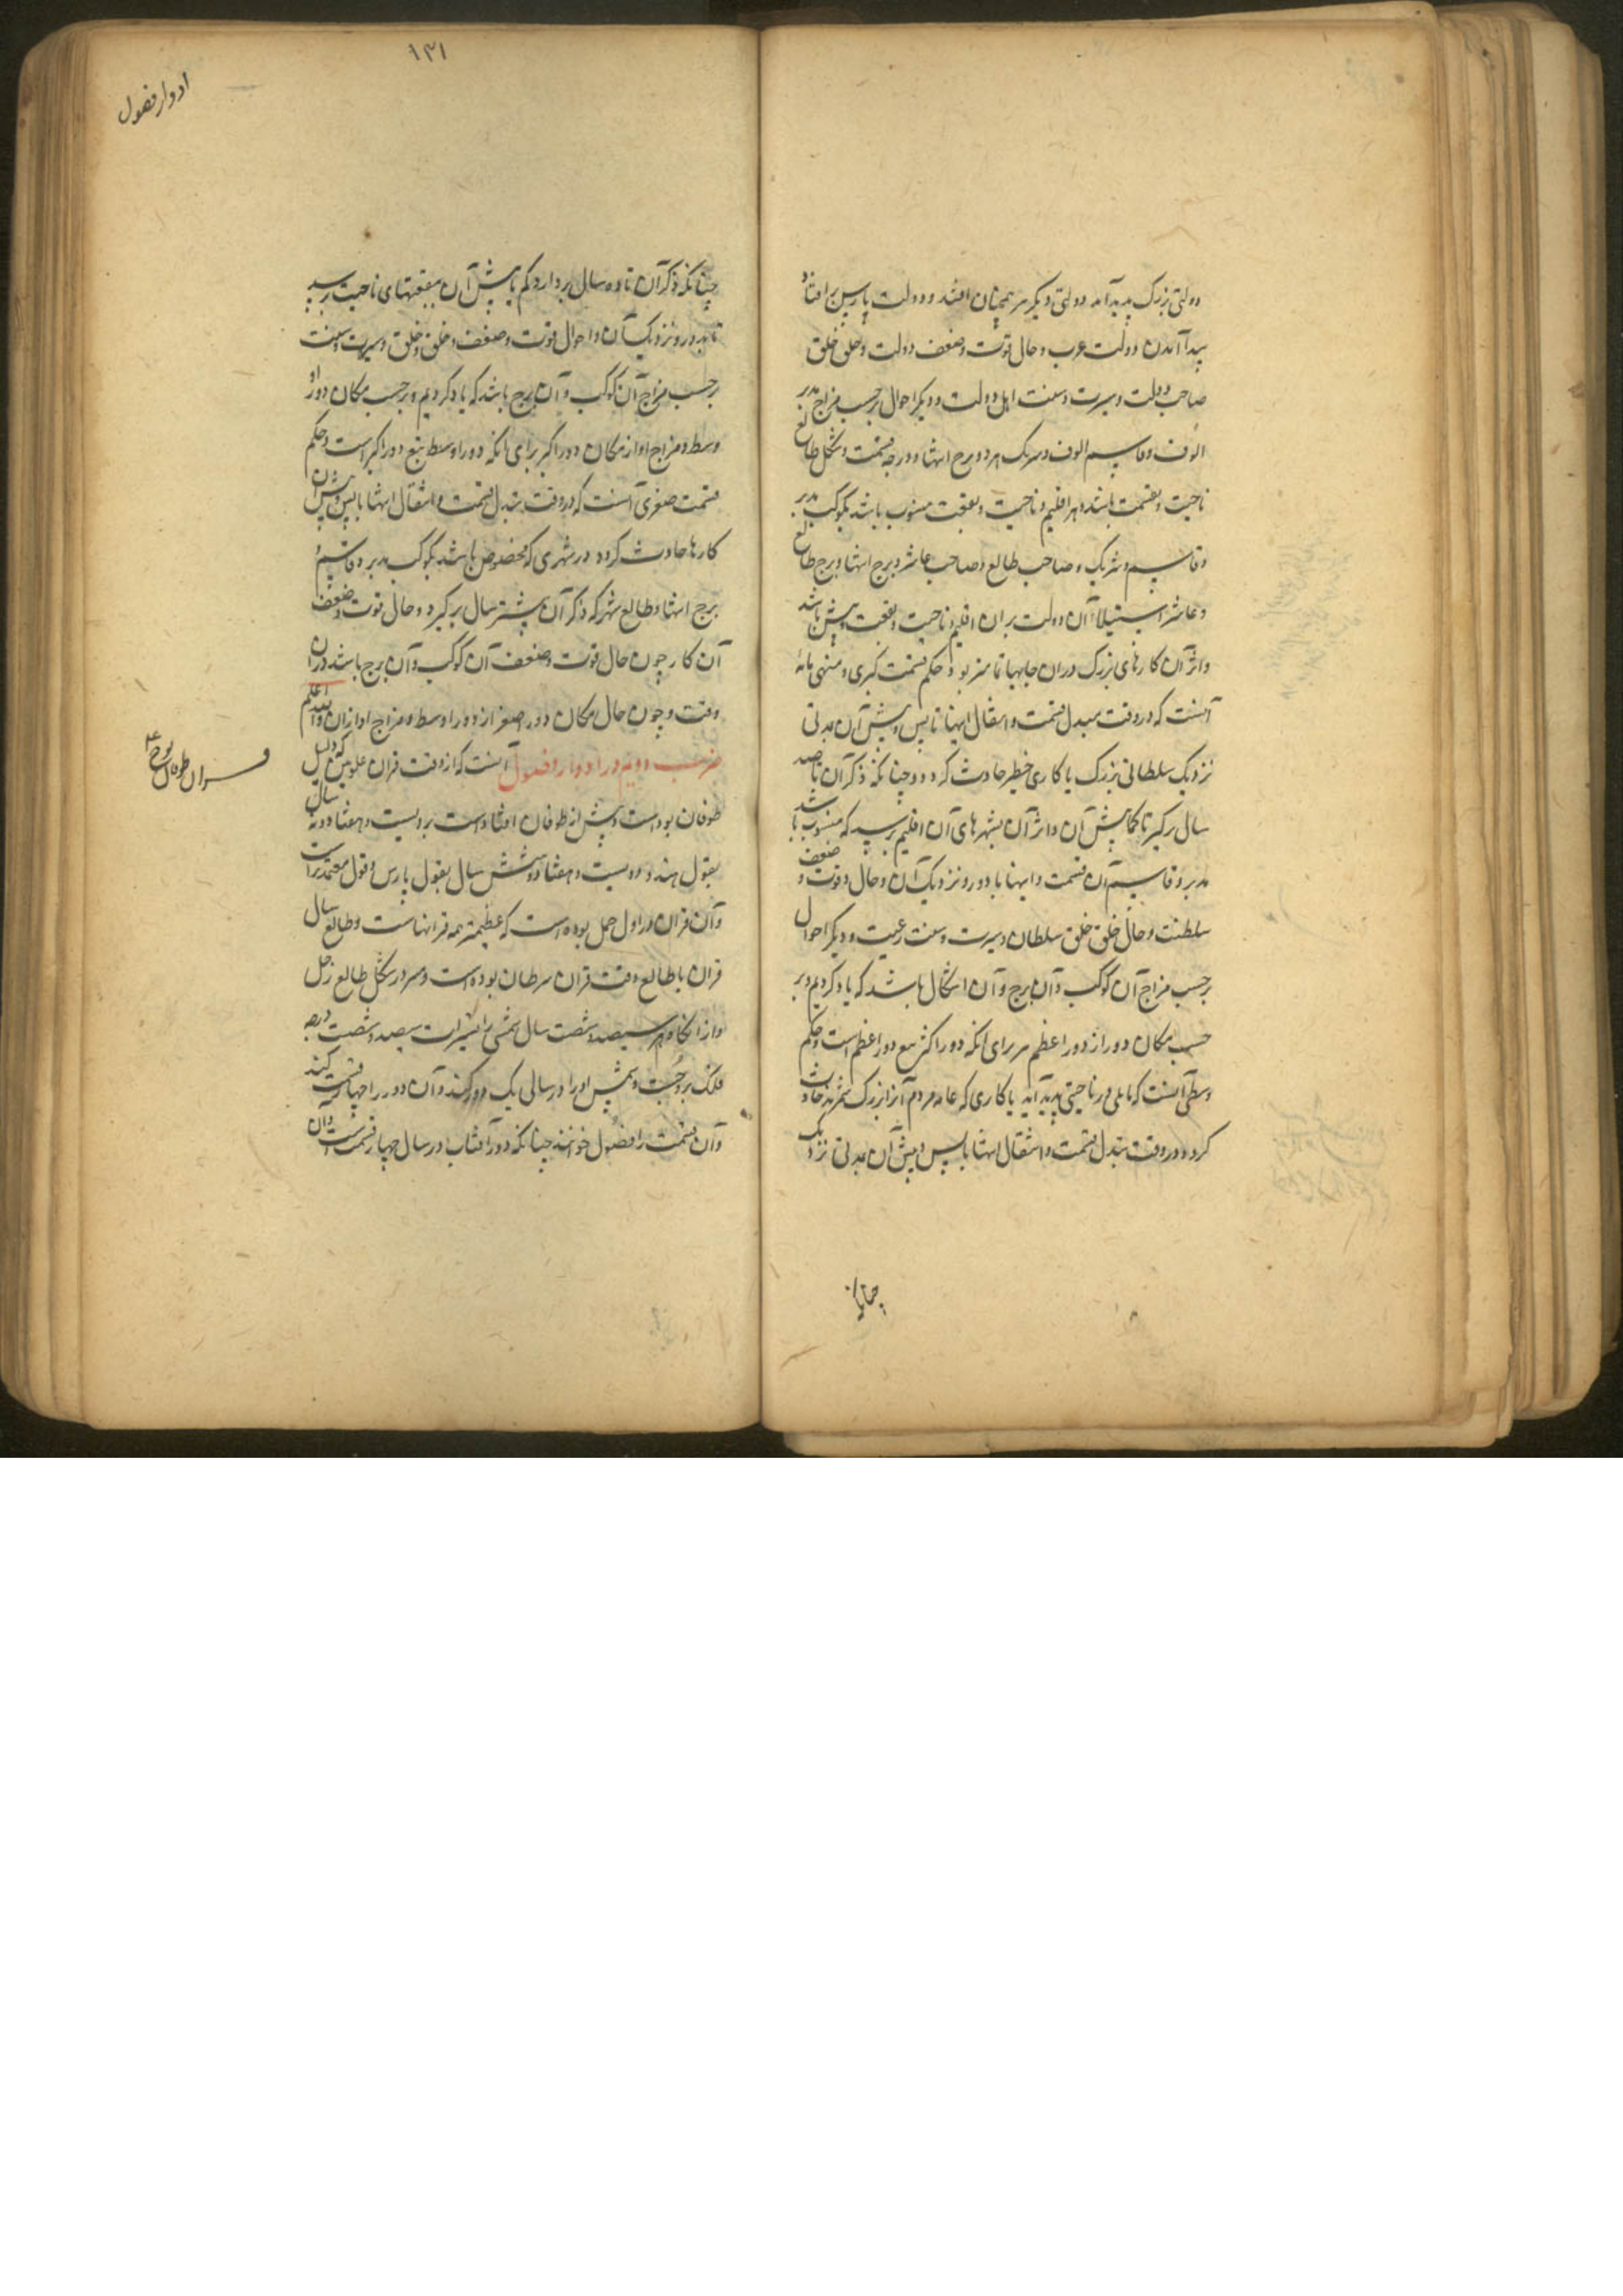 دولتی بزرگ پدید آمد دولتی دیگر همچنان افتد و دولت پارس بر افتاد
پیدا آمدن دولت عرب و حال قوت و ضعف دولت و خلق خلق
صاحب دولت و سیرت و سنت اهل دولت و دیگر احوال بر حسب مزاج مدبر
الوف و قاسم الوف و شریک هر دو برج انتها و درجه قسمت و شکل طالع
ناحیت و قسمت باشد و هر اقلیم و ناحیت و بقعت منسوب باشد بکوکب مدبر
و قاسم و شریک و صاحب طالع و صاحب عاشر و برج انتها و برج طالع
و عاشر استیلا آن دولت بران اقلیم و ناحیت و بقعت بیش باشد
و اثر آن کارهای بزرگ دران جایها بود و حکم قسمت کبری و منتهی مائه
آنست که در وقت تبدل قسمت و انتقال انتها تا پس و پیش آن مدتی
نزدیک سلطانی بزرگ یا کاری خطیر حادث کردد و چنانکه ذکر آن تا صد
سال برگیرد تا کمابیش آن و اثر آن بشهرهای آن اقلیم برسد که منسوب باشد
مدبر و قاسم آن قسمت و انتها یا دور و نزدیک آن و حال و قوت و ضعف
سلطنت و حال خلق خلق سلطان و سیرت و سنت رعیت و دیگر احوال
بر حسب مزاج آن کوکب و آن برج و آن اشکال باشد که یاد کردیم و بر
حسب مکان دور از دور اعظم برای آنکه دور اکبر تبع دور اعظم است و حکم
وسطی آنست که در ناحیتی پدید آید یا کاری که عامه مردم آنرا بزرگ شمرند حادث
کردد در وقت تبدل قسمت و انتقال انتها یا پس و پیش آن مدتی نزدیک
چنانکه
۱۳۱
ادوار فصول
چنانکه ذکر آن تا ده سال بردارد کم یا بیش آن ببقعتهای ناحیت برسد
دور و نزدیک آن و احوال قوت و ضعف و خلق و خلق و سیرت و سنت
بر حسب مزاج آن کوکب و آن برج باشد که یاد کردیم و بر حسب مکان دور او
وسط و مزاج او از مکان دور اکبر برای آنکه دور اوسط تبع دور اکبر است و حکم
قسمت صغری آنست که در وقت تبدل قسمت و انتقال انتها یا پس و پیش آن
کارها حادث کردد در شهری که مخصوص باشد بکوکب مدبر و قاسم و
برج انتها و طالع شهر که ذکر آن بیشتر سال بر گیرد و حال قوت و ضعف
آن کار چون حال قوت و ضعف آن کوکب و آن برج باشد دران
وقت و چون حال مکان دور اصغر از دور اوسط و مزاج او ازان والله اعلم
مذهب دویم در ادوار و فصول آنست که از وقت قران علویین که دلیل
طوفان بوده است و پیش از طوفان افتاده است بدویست و هفتاد و نه سال
بقول هند و دویست و هفتاد و شش سال بقول پارس و قول معتمد تراست
و آن قران در اول حمل بوده است که عظیمتر همه قرانهاست و طالع سال
قران با طالع وقت قران سرطان بوده است و در شکل طالع زحل
و از آنگاه هر سیصد و شصت سال شمسی سیصد و شصت درجه
فلک بروجست و شمس او را در سالی یک دور کند و آن دور را چهار قسمت کنند
و آن قسمت را فصول خوانند چنانکه دور آفتاب در سال چهار قسمت است و آن
قران طوفان نوح ع